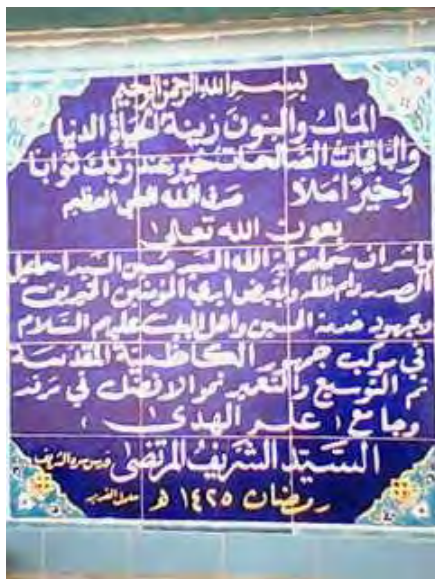 بسم الله الرحمن الرحيم
المال والبنون زينة الحياة الدنيا
والباقيات الصالحات خير عند ربك ثوابا
وخير املا صدق الله العلي العظيم
بعون الله تعالى
باشراف سماحة آية الله السيد حسين السيد اسماعيل
الصدر دام ظله وبفيض ايدي المؤمنين الخيرين
وبجهود خدمة الحسين واهل البيت عليهم السلام
في موكب جمهور الكاظمية المقدسة
تم التوسيع والتعمير نحو الافضل في مرقد
وجامع ( علم الهدى )
السيد الشريف المرتضى قدس سره الشريف
رمضان ١٤٢٥ هـ